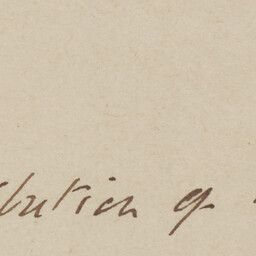 bution of